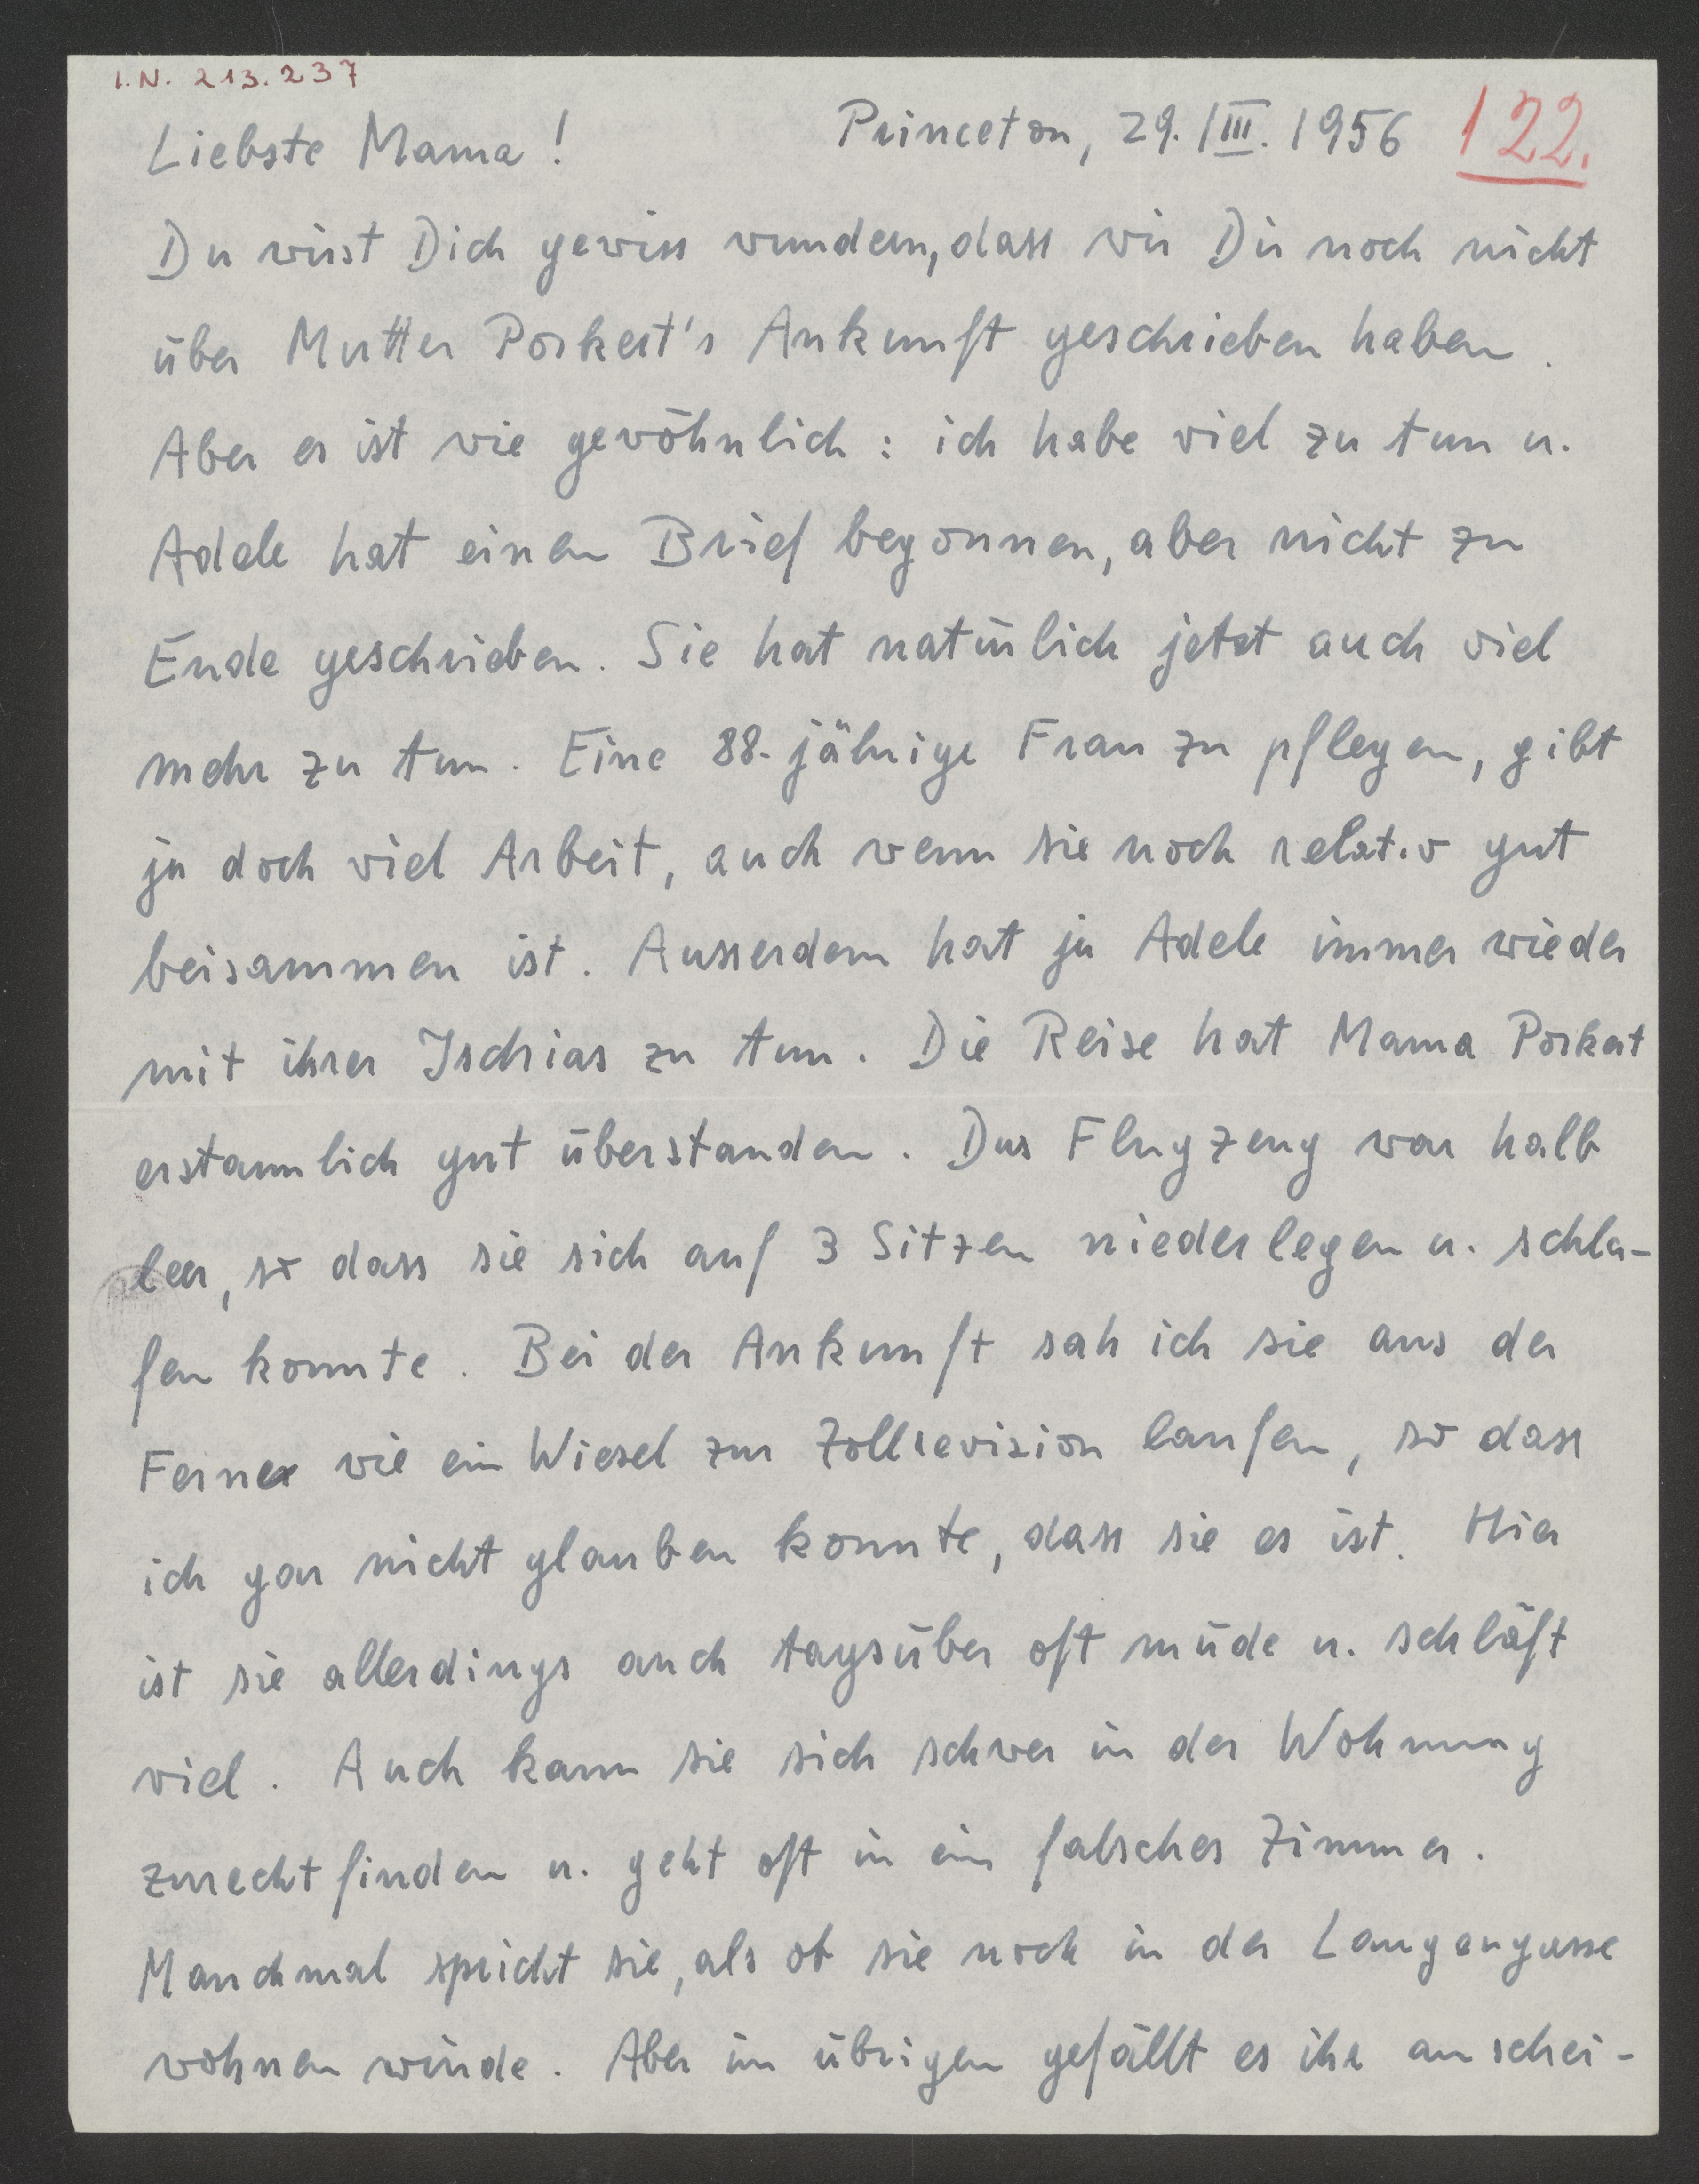 I.N. 213.237
Liebste Mama! Princeton, 29./III. 1956 122.
Du wirst Dich gewiss wundern, dass wir Dir noch nicht
über Mutter Porkert's Ankunft geschrieben haben.
Aber es ist wie gewöhnlich: ich habe viel zu tun u.
Adele hat einen Brief begonnen, aber nicht zu
Ende geschrieben. Sie hat natürlich jetzt auch viel
mehr zu tun. Eine 88-jährige Frau zu pflegen, gibt
ja doch viel Arbeit, auch wenn sie noch relativ gut
beisammen ist. Ausserdem hat ja Adele immer wieder
mit ihrer Ischias zu tun. Die Reise hat Mama Porkert
erstaunlich gut überstanden. Das Flugzeug war halb
leer, so dass sie sich auf 3 Sitzen niederlegen u. schla-
fen konnte. Bei der Ankunft sah ich sie aus der
Ferne wie ein Wiesel zur Zollrevision laufen, so dass
ich gar nicht glauben konnte, dass sie es ist. Hier
ist sie allerdings auch tagsüber oft müde u. schläft
viel. Auch kann sie sich schwer in der Wohnung
zurechtfinden u. geht oft in ein falsches Zimmer.
Manchmal spricht sie, als ob sie noch in der Langengasse
wohnen würde. Aber im übrigen gefällt es ihr anschei-